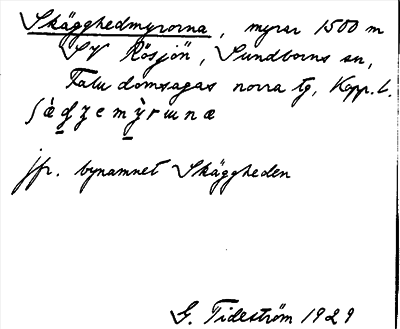 Skägghedmyrorna, myrar 1500 m
SV Rösjön, Sundborns sn,
Falu domsagas norra tg, Kopp. l.
jfr. bynamnet Skäggheden
G. Tideström 1929